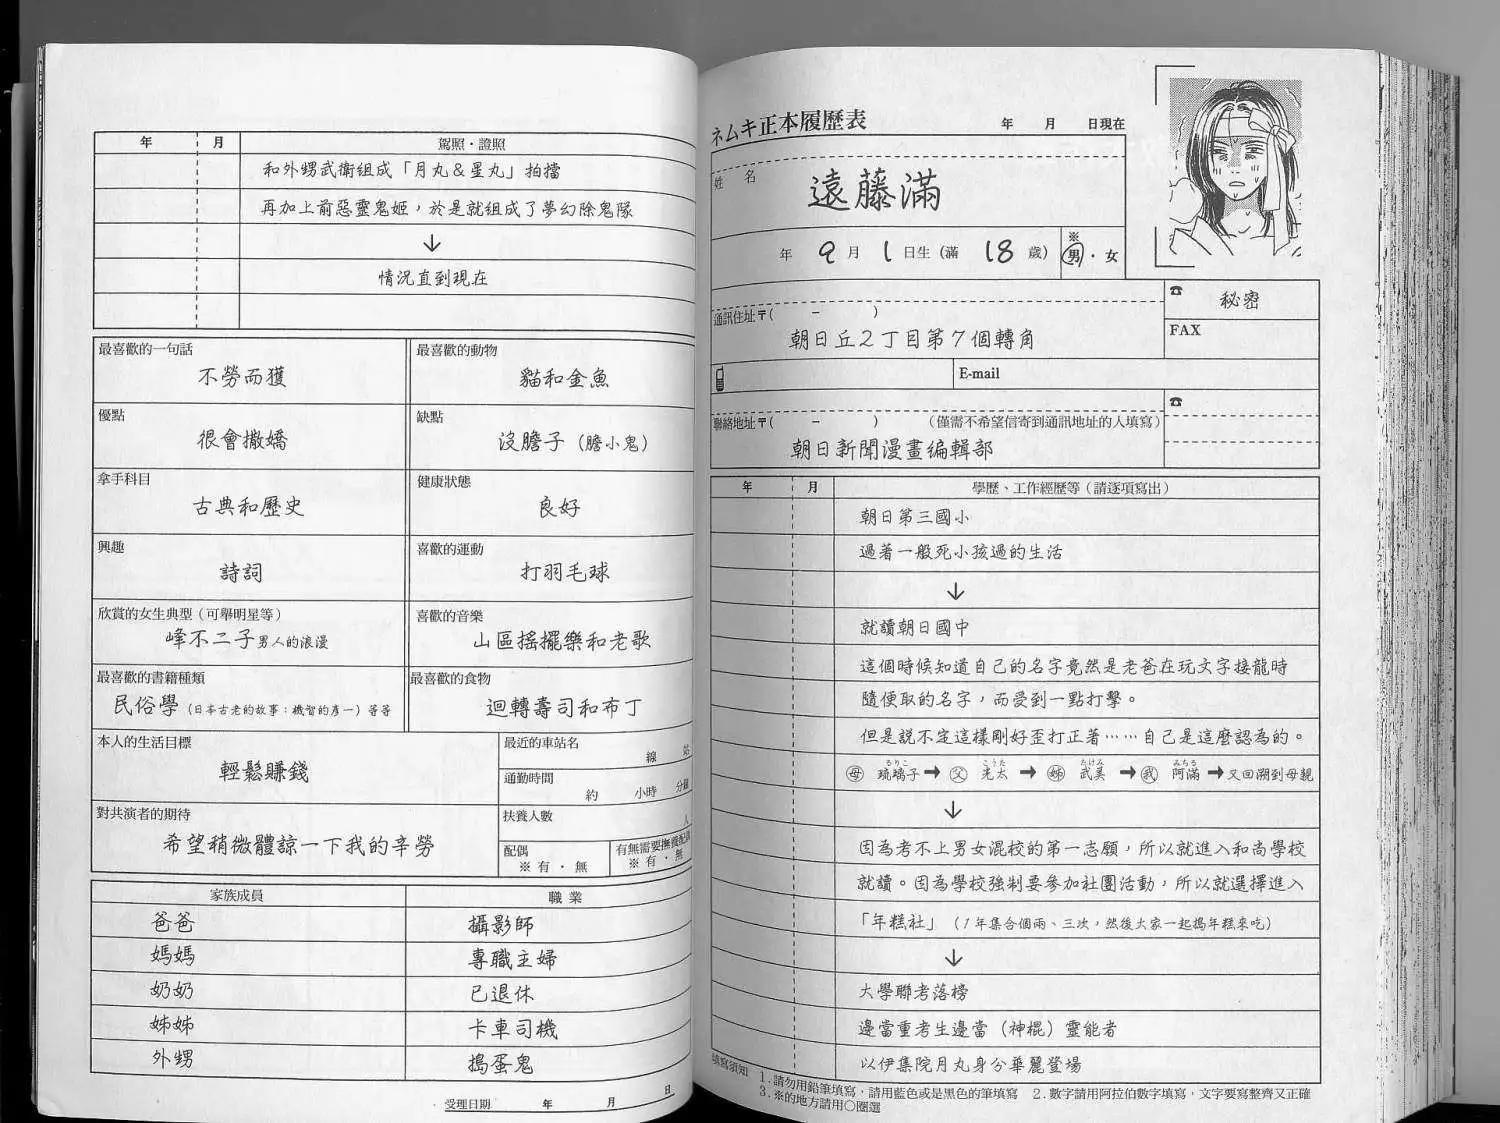 年 月 駕照・證照
和外甥武衛組成「月丸＆星丸」拍擋
再加上前惡靈鬼姬，於是就組成了夢幻除鬼隊
↓
情況直到現在
最喜歡的一句話
不勞而獲
最喜歡的動物
貓和金魚
優點
很會撒嬌
缺點
沒膽子（膽小鬼）
拿手科目
古典和歷史
健康狀態
良好
興趣
詩詞
喜歡的運動
打羽毛球
欣賞的女生典型（可舉明星等）
峰不二子男人的浪漫
喜歡的音樂
山區搖擺樂和老歌
最喜歡的書籍種類
民俗學（日本古老的故事：機智的彥一）等等
最喜歡的食物
迴轉壽司和布丁
本人的生活目標
輕鬆賺錢
最近的車站名
線 站
通勤時間
約 小時 分鐘
對共演者的期待
希望稍微體諒一下我的辛勞
扶養人數
人
配偶
※有・無
有無需要撫養配偶
※有・無
家族成員 職業
爸爸 攝影師
媽媽 專職主婦
奶奶 已退休
姊姊 卡車司機
外甥 搗蛋鬼
受理日期 年 月 日
ネムキ正本履歷表 年 月 日現在
姓 名
遠藤滿
年 9 月 1 日生（滿 18 歲）
※
男・女
通訊住址〒（ － ）
朝日丘2丁目第7個轉角
☎
秘密
FAX
E-mail
聯絡地址〒（ － ）（僅需不希望信寄到通訊地址的人填寫）
朝日新聞漫畫編輯部
☎
年 月 學歷、工作經歷等（請逐項寫出）
朝日第三國小
過著一般死小孩過的生活
↓
就讀朝日國中
這個時候知道自己的名字竟然是老爸在玩文字接龍時
隨便取的名字，而受到一點打擊。
但是說不定這樣剛好歪打正著……自己是這麼認為的。
るりこ こうた たけみ みちる
母 琉璃子→父 光太→姊 武美→我 阿滿→又回溯到母親
↓
因為考不上男女混校的第一志願，所以就進入和尚學校
就讀。因為學校強制要參加社團活動，所以就選擇進入
「年糕社」（1年集合個兩、三次，然後大家一起搗年糕來吃）
↓
大學聯考落榜
邊當重考生邊當（神棍）靈能者
以伊集院月丸身分華麗登場
填寫須知 1.請勿用鉛筆填寫，請用藍色或是黑色的筆填寫 2.數字請用阿拉伯數字填寫，文字要寫整齊又正確
3.※的地方請用○圈選